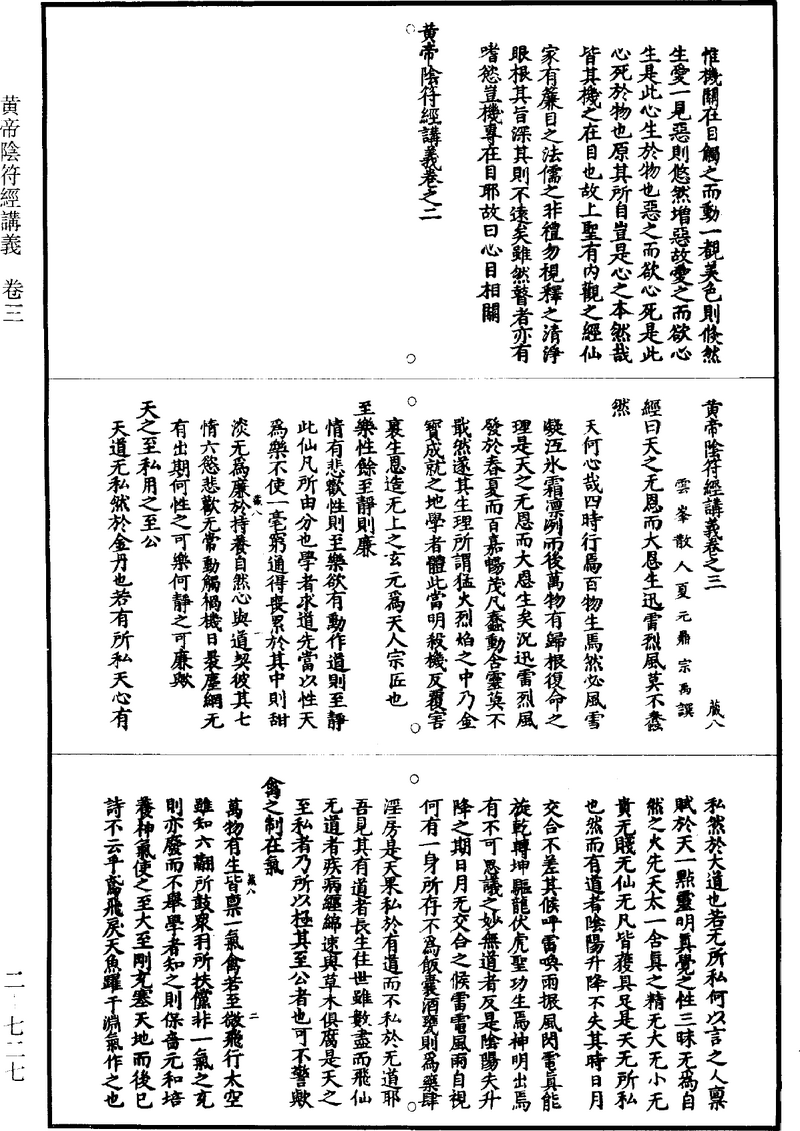 黃帝陰符經講義　卷三
二　七二七
惟機關在目觸之而動一覩美色則倏然
生愛一見惡則悠然增惡故愛之而欲心
生是此心生於物也惡之而欲心死是此
心死於物也原其所自豈是心之本然哉
皆其機之在目也故上聖有內觀之經仙
家有簾目之法儒之非禮勿視釋之清淨
眼根其旨深其則不遠矣雖然瞽者亦有
嗜慾豈機專在目耶故曰心目相關
黃帝陰符經講義卷之二
黃帝陰符經講義卷之三　藏八
雲峯散人夏元鼎宗禹譔
經曰天之无恩而大恩生迅雷烈風莫不蠢
然
天何心哉四時行焉百物生焉然必風雪
凝沍氷霜凛冽而後萬物有歸根復命之
理是天之无恩而大恩生矣況迅雷烈風
發於春夏而百嘉暢茂凡蠢動含靈莫不
戢然遂其生理所謂猛火烈焰之中乃金
寶成就之地學者體此當明殺機反覆害
裏生恩造无上之玄元為天人宗匠也
至樂性餘至靜則廉
情有悲歡性則至樂欲有動作道則至靜
此仙凡所由分也學者求道先當以性天
為樂不使一毫窮通得喪累於其中則甜
淡无為廉於持養自然心與道契彼其七
情六慾悲歡无常動觸禍機日裹塵網无
有出期何性之可樂何靜之可廉歟
天之至私用之至公
天道无私然於金丹也若有所私天心有
藏八　一
私然於大道也若无所私何以言之人禀
賦於天一點靈明真覺之性三昧无為自
然之火先天太一含真之精无大无小无
貴无賤无仙无凡皆獲具足是天无所私
也然而有道者陰陽升降不失其時日月
交合不差其候呼雷喚雨振風閃電真能
旋乾轉坤驅龍伏虎聖功生焉神明出焉
有不可思議之妙無道者反是陰陽失升
降之期日月无交合之候雷電風雨自視
何有一身所存不為飯囊酒甕則為藥肆
淫房是天果私於有道而不私於无道耶
吾見其有道者長生住世雖數盡而飛仙
无道者疾病經綿速與草木俱腐是天之
至私者乃所以極其至公者也可不警歟
禽之制在氣
萬物有生皆禀一氣禽若至微飛行太空
雖知六翮所鼓衆羽所扶儻非一氣之充
則亦廢而不舉學者知之則保嗇元和培
養神氣使之至大至剛充塞天地而後已
詩不云乎鳶飛戾天魚躍于淵氣作之也
藏八　二